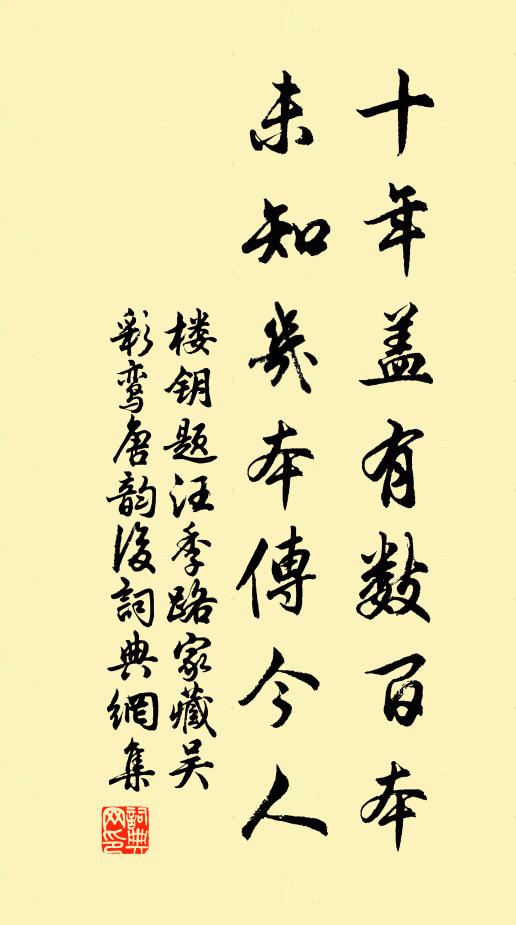 十年盖有数百本
未知幾本傳今人
楼钥题汪季路家藏吴
彩鸾唐韵後詞典網集
詞典网印